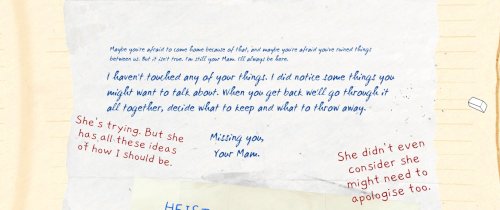 Maybe you're afraid to come home because of that, and maybe you're afraid you've ruined things
between us. But it isn't true. I'm still your Mam. I'll always be here.
I haven't touched any of your things. I did notice some things you
might want to talk about. When you get back we'll go through it
all together, decide what to keep and what to throw away.
Missing you,
Your Mam.
She's trying. But she
has all these ideas
of how I should be.
She didn't even
consider she
might need to
apologise too.